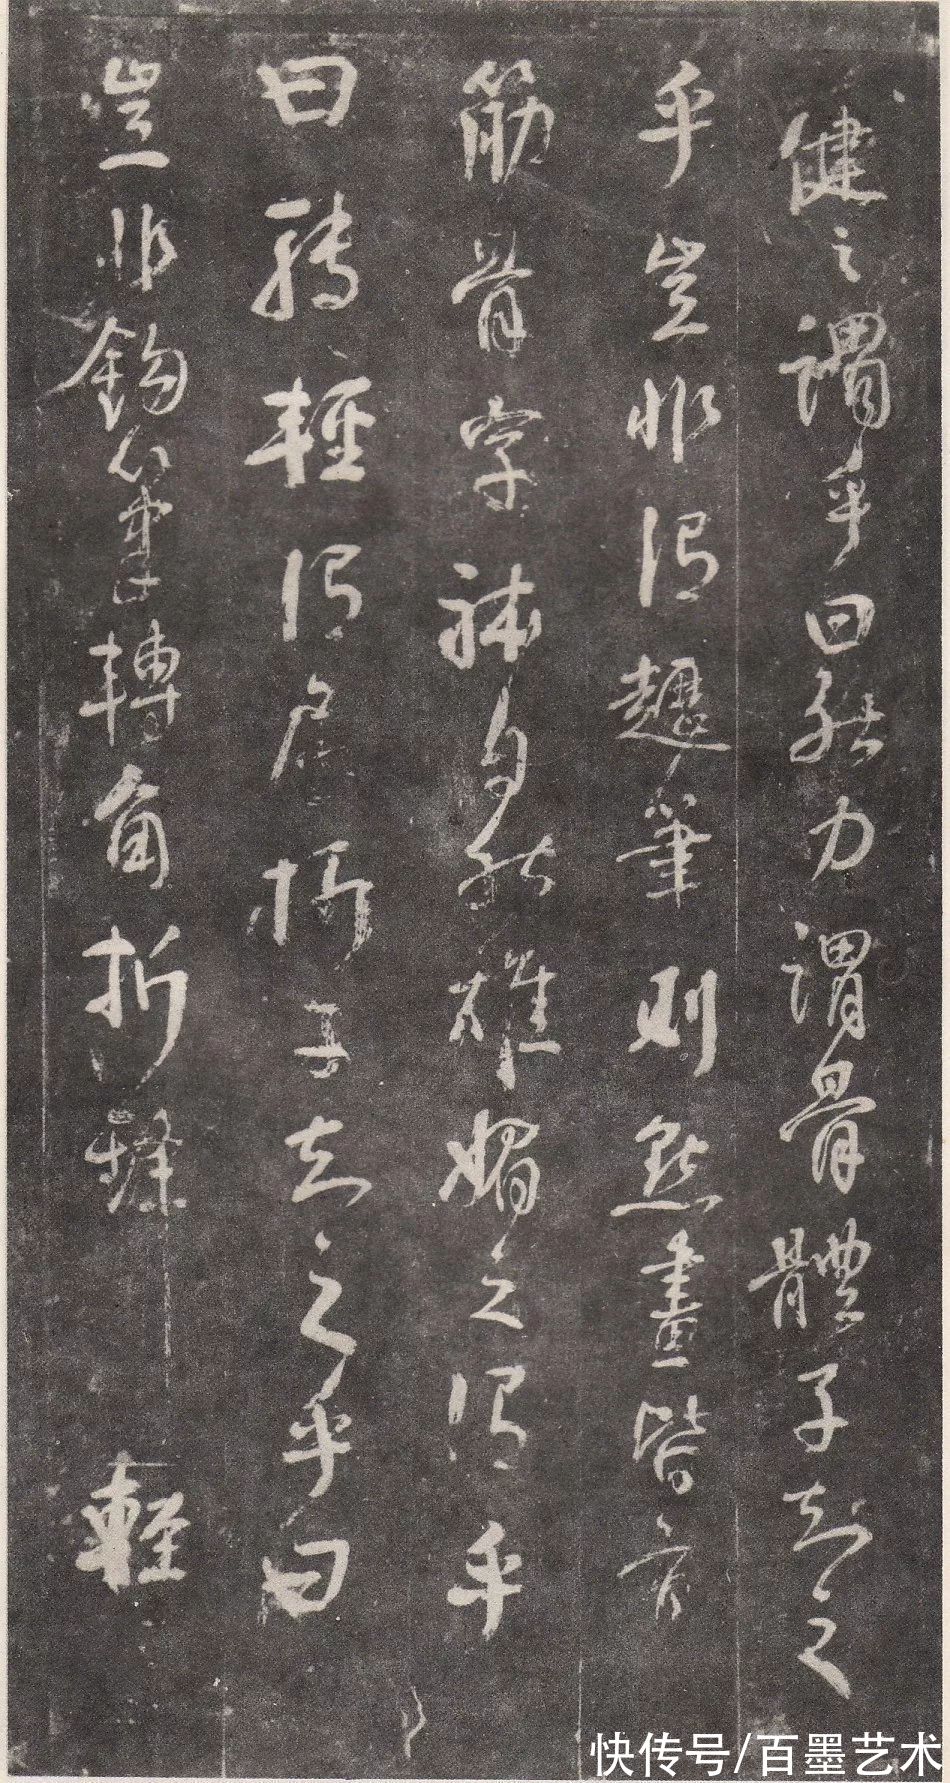 健之謂乎曰然力謂骨體子知之
乎豈非謂趯筆則點畫皆有
筋骨字躰自然雄媚之謂乎
曰然輕謂屈折子知之乎曰
豈非鈎筆轉角折鋒輕
快传号/百墨艺术